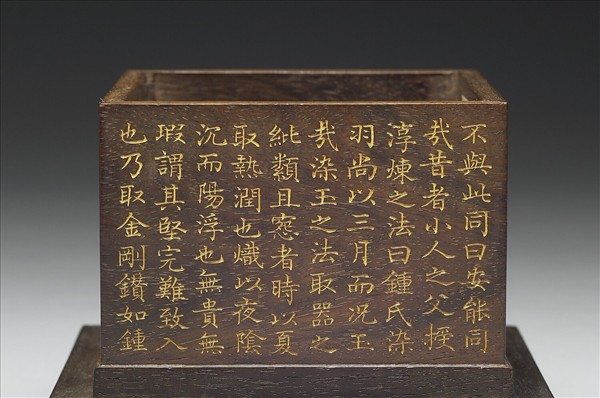 不與此同曰安能同
哉昔者小人之父授
淳煉之法曰鍾氏染
羽尚以三月而況玉
哉染玉之法取器之
紕纇且窳者時以夏
取熱潤也熾以夜陰
沉而陽浮也無貴無
瑕謂其堅完難致入
也乃取金剛鑽如鍾